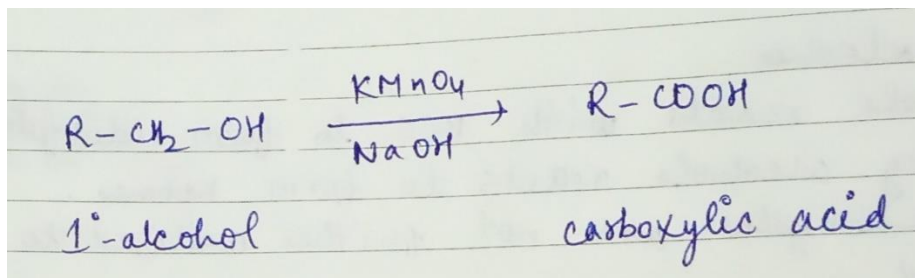 R-CH₂-OH KMnO₄ NaOH → R-COOH
1°-alcohol carboxylic acid